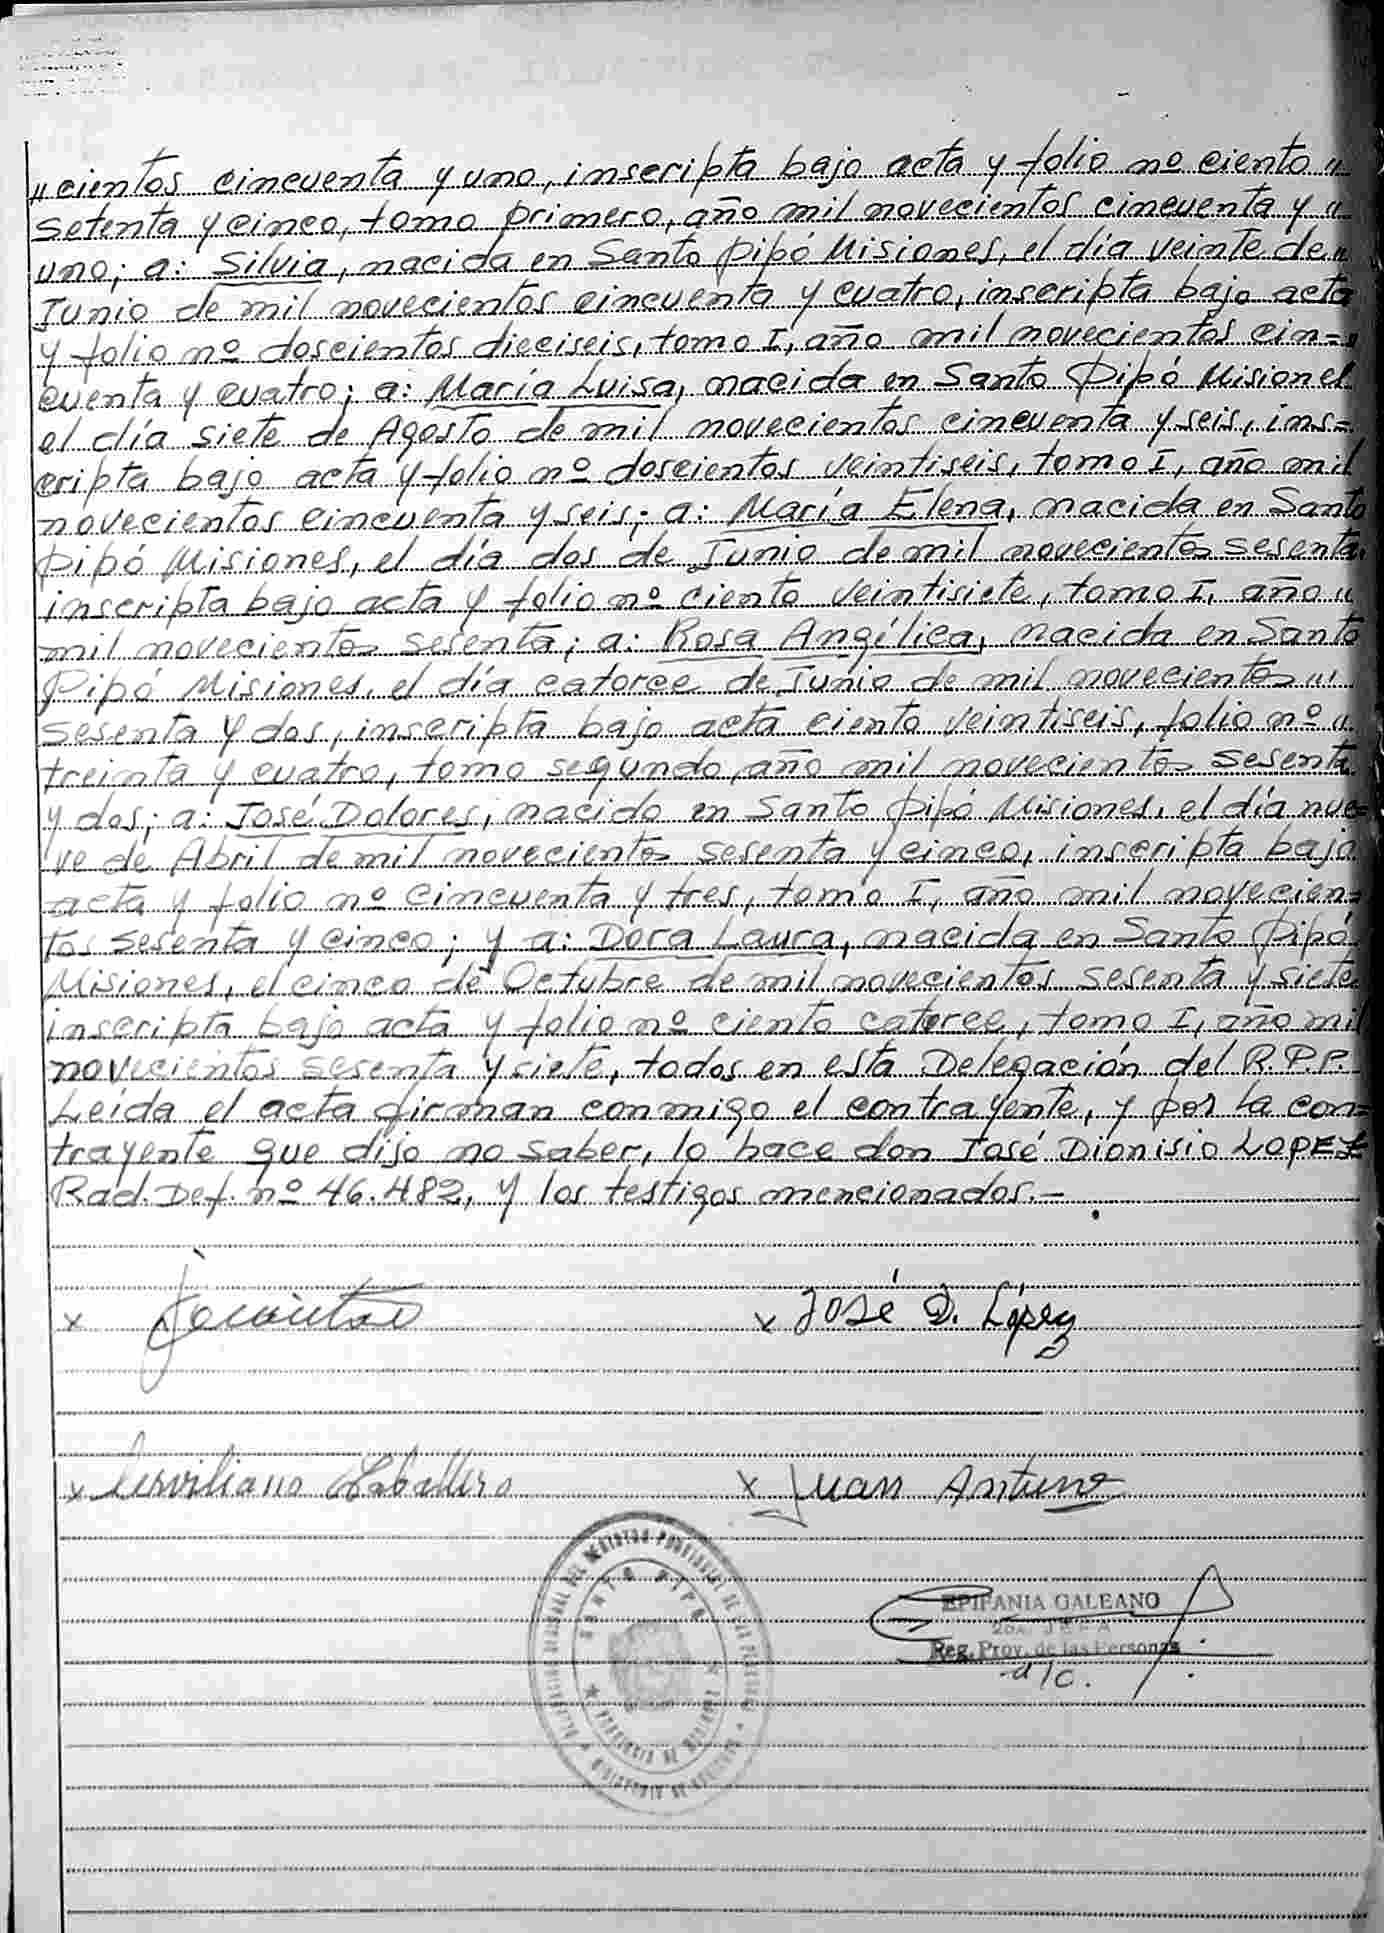 "cientos cincuenta y uno, inscripta bajo acta y folio nº ciento "
setenta y cinco, tomo primero, año mil novecientos cincuenta y "
uno; a: Silvia, nacida en Santo Pipó Misiones, el día veinte de "
Junio de mil novecientos cincuenta y cuatro, inscripta bajo acta
y folio nº doscientos dieciseis, tomo I, año mil novecientos cin=
cuenta y cuatro; a: María Luisa, nacida en Santo Pipó Misiones
el día siete de Agosto de mil novecientos cincuenta y seis, ins=
cripta bajo acta y folio nº doscientos veintiseis, tomo I, año mil
novecientos cincuenta y seis; a: María Elena, nacida en Santo
Pipó Misiones, el día dos de Junio de mil novecientos sesenta,
inscripta bajo acta y folio nº ciento veintisiete, tomo I, año "
mil novecientos sesenta; a: Rosa Angélica, nacida en Santo
Pipó Misiones, el día catorce de Junio de mil novecientos "
sesenta y dos, inscripta bajo acta ciento veintiseis, folio nº "
treinta y cuatro, tomo segundo, año mil novecientos sesenta
y dos; a: José Dolores, nacido en Santo Pipó Misiones, el día nue=
ve de Abril de mil novecientos sesenta y cinco, inscripta bajo
acta y folio nº cincuenta y tres, tomo I, año mil novecien=
tos sesenta y cinco; y a: Dora Laura, nacida en Santo Pipó
Misiones, el cinco de Octubre de mil novecientos sesenta y siete
inscripta bajo acta y folio nº ciento catorce, tomo I, año mil
novecientos sesenta y siete, todos en esta Delegación del R.P.P.
Leída el acta firman conmigo el contrayente, y por la con=
trayente que dijo no saber, lo hace don José Dionisio LOPEZ
Rad. Def. nº 46.482, y los testigos mencionados.-
x
x José D. López
x Serviliano Caballero
x Juan Antunez
SANTO PIPO
PROVINCIA DE MISIONES
EPIFANIA GALEANO
2da. JEFA
Reg. Prov. de las Personas
a/c.